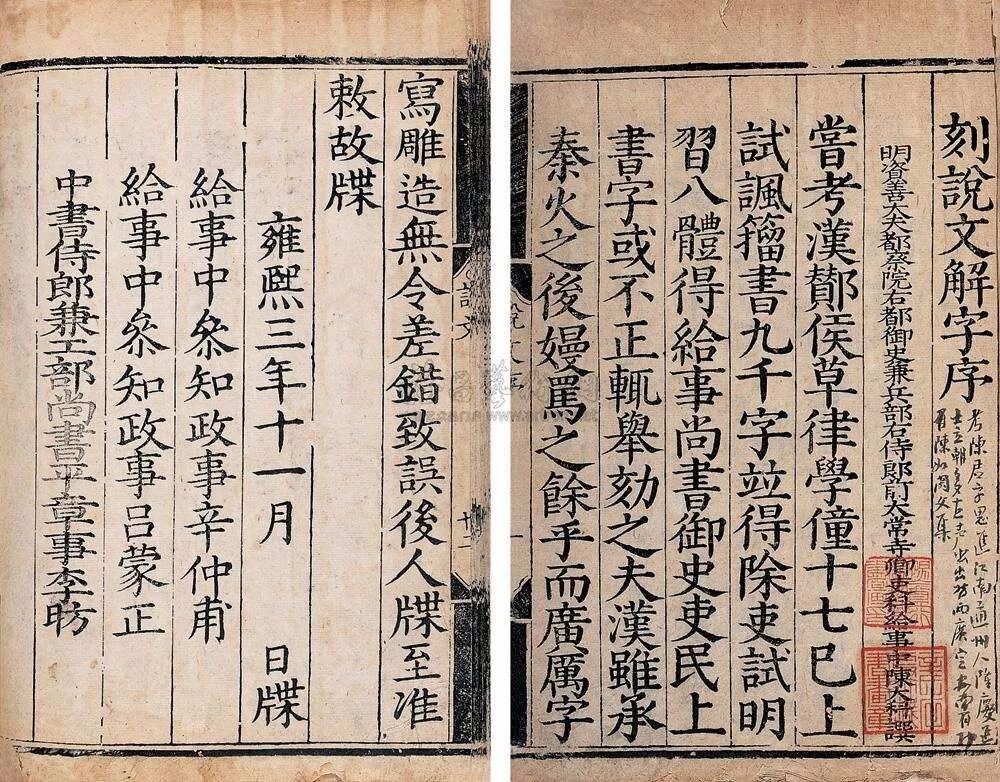 刻說文解字序
明資善大夫都察院右都御史兼兵部右侍郎前太常寺卿吏科給事中陳大科譔
嘗考漢酇侯草律學僮十七已上
試諷籀書九千字並得除吏試明
習八體得給事尚書御史吏民上
書字或不正輒舉劾之夫漢雖承
秦火之後嫚罵之餘乎而廣厲字
寫雕造無令差錯致誤後人牒至准
敕故牒
雍熙三年十一月 日牒
給事中參知政事辛仲甫
給事中參知政事呂蒙正
中書侍郎兼工部尚書平章事李昉